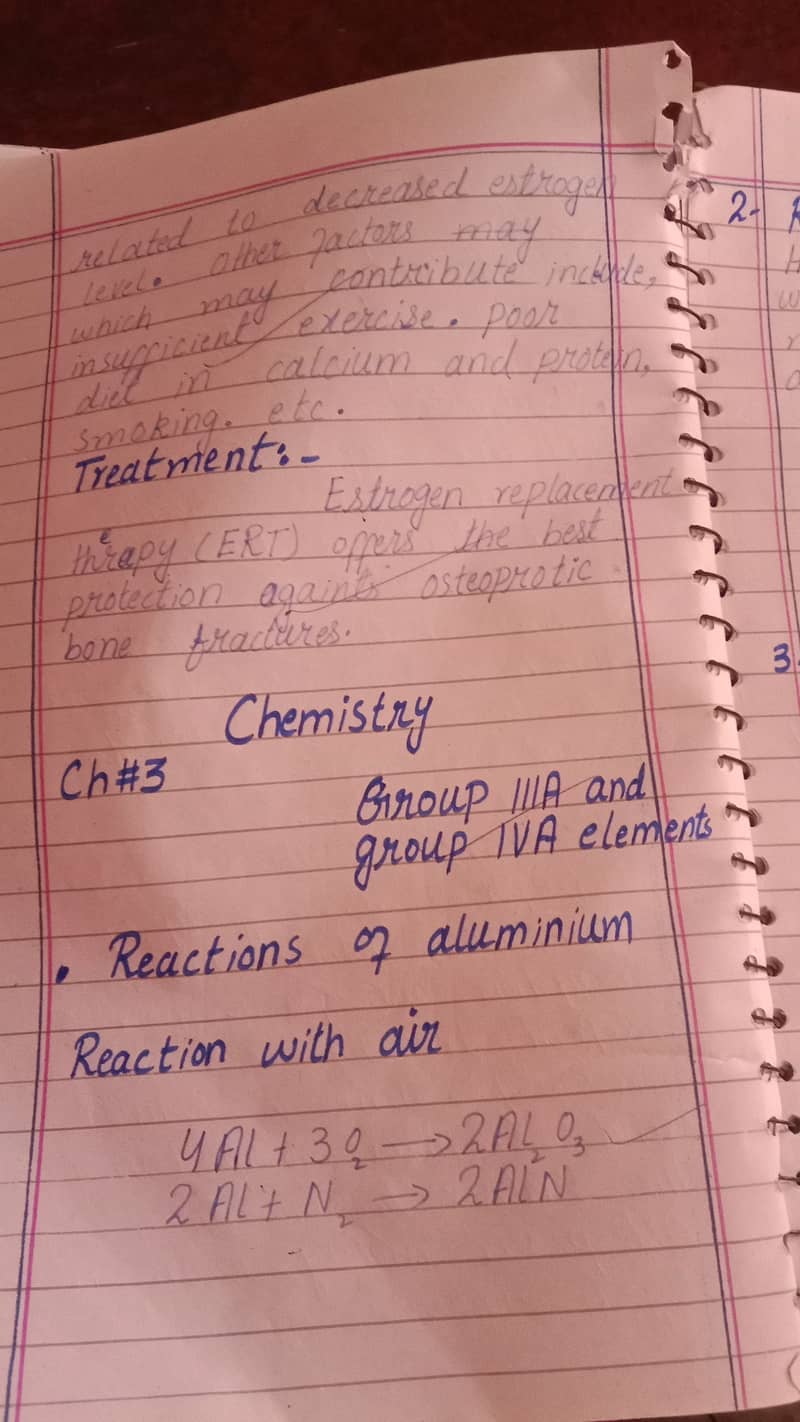 related to decreased estrogen
level. Other factors may
which may contribute include,
insufficient exercise. Poor
diet in calcium and protein,
smoking. etc.
Treatment:-
Estrogen replacement
therapy (ERT) offers the best
protection againts osteoprotic
bone fractures.
Chemistry
Ch#3
Group IIIA and
group IVA elements
• Reactions of aluminium
Reaction with air
4Al + 3O₂ → 2Al₂O₃
2Al + N₂ → 2AlN
2-
3.